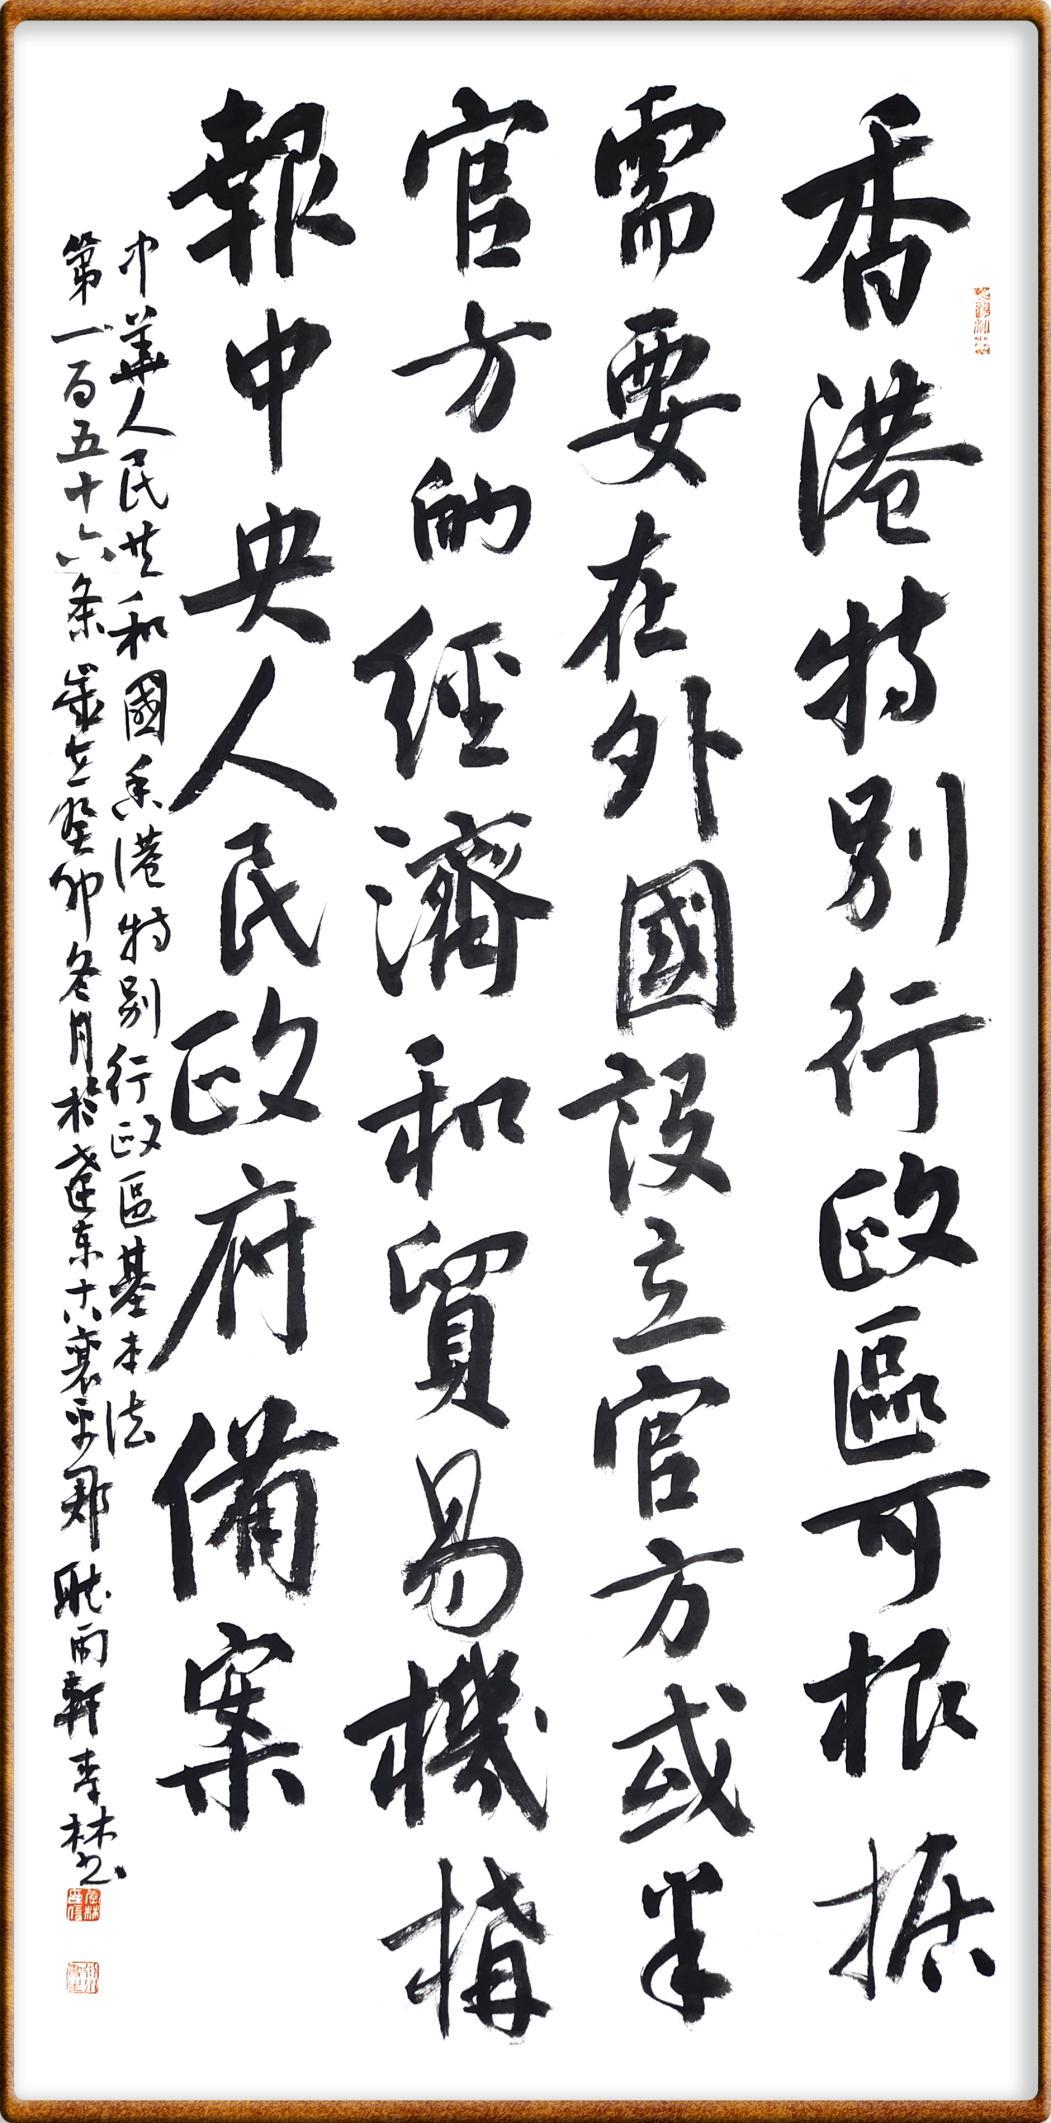 香港特别行政區可根据
需要在外國設立官方或半
官方的經濟和貿易機構
報中央人民政府備案
中華人民共和國香港特别行政區基本法
第一百五十六条歲在癸卯冬月於遼东古襄平郡聴雨軒李林书